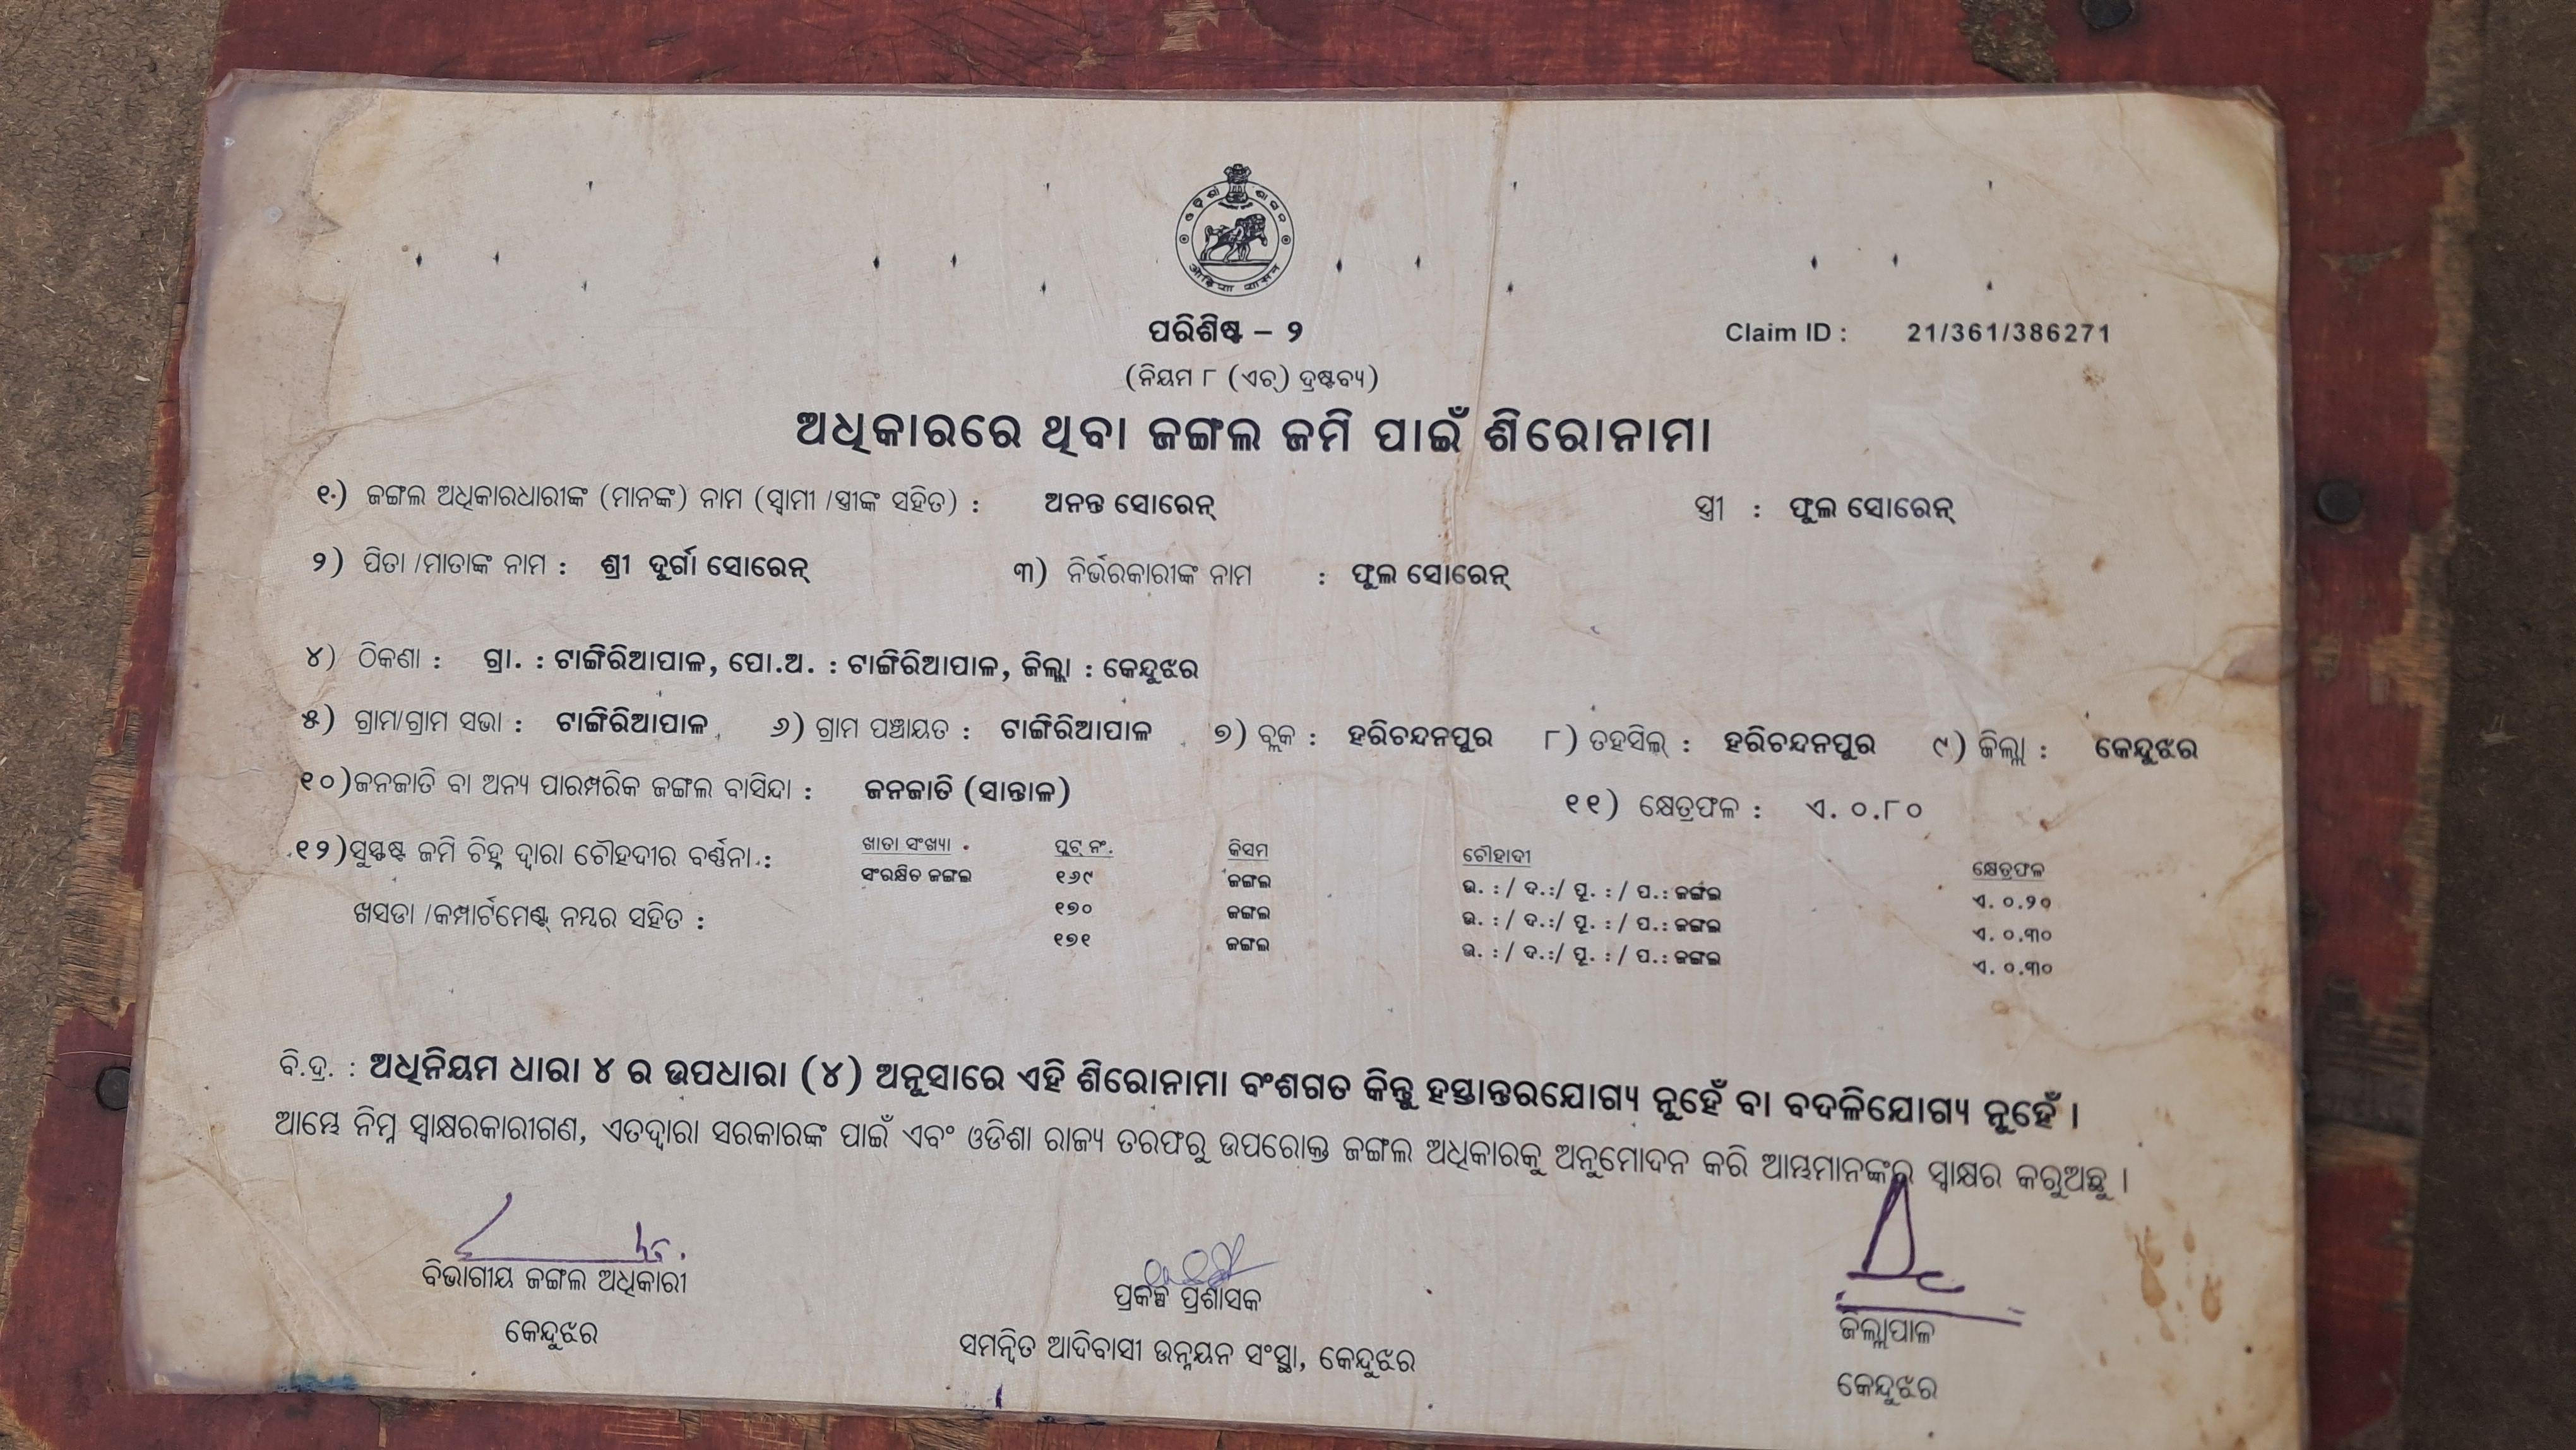 ଓଡ଼ିଶା ଶାସନ
ओड़िशा शासन
ପରିଶିଷ୍ଟ – ୨
Claim ID : 21/361/386271
(ନିୟମ ୮ (ଏଚ୍) ଦ୍ରଷ୍ଟବ୍ୟ)
ଅଧିକାରରେ ଥିବା ଜଙ୍ଗଲ ଜମି ପାଇଁ ଶିରୋନାମା
୧.) ଜଙ୍ଗଲ ଅଧିକାରଧାରୀଙ୍କ (ମାନଙ୍କ) ନାମ (ସ୍ୱାମୀ /ସ୍ତ୍ରୀଙ୍କ ସହିତ) : ଅନନ୍ତ ସୋରେନ୍ ସ୍ତ୍ରୀ : ଫୁଲ ସୋରେନ୍
୨) ପିତା /ମାତାଙ୍କ ନାମ : ଶ୍ରୀ ଦୁର୍ଗା ସୋରେନ୍ ୩) ନିର୍ଭରକାରୀଙ୍କ ନାମ : ଫୁଲ ସୋରେନ୍
୪) ଠିକଣା : ଗ୍ରା. : ଟାଙ୍ଗିରିଆପାଳ, ପୋ.ଅ. : ଟାଙ୍ଗିରିଆପାଳ, ଜିଲ୍ଲା : କେନ୍ଦୁଝର
୫) ଗ୍ରାମ/ଗ୍ରାମ ସଭା : ଟାଙ୍ଗିରିଆପାଳ ୬) ଗ୍ରାମ ପଞ୍ଚାୟତ : ଟାଙ୍ଗିରିଆପାଳ ୭) ବ୍ଲକ : ହରିଚନ୍ଦନପୁର ୮) ତହସିଲ୍ : ହରିଚନ୍ଦନପୁର ୯) ଜିଲ୍ଲା : କେନ୍ଦୁଝର
୧୦)ଜନଜାତି ବା ଅନ୍ୟ ପାରମ୍ପରିକ ଜଙ୍ଗଲ ବାସିନ୍ଦା : ଜନଜାତି (ସାନ୍ତାଳ) ୧୧) କ୍ଷେତ୍ରଫଳ : ଏ. ୦.୮୦
୧୨)ସୁସ୍ପଷ୍ଟ ଜମି ଚିହ୍ନ ଦ୍ୱାରା ଚୌହଦୀର ବର୍ଣ୍ଣନା : ଖାତା ସଂଖ୍ୟା ପ୍ଲଟ୍ ନଂ. କିସମ ଚୌହାଦୀ କ୍ଷେତ୍ରଫଳ
ସଂରକ୍ଷିତ ଜଙ୍ଗଲ ୧୬୯ ଜଙ୍ଗଲ ଉ. : / ଦ.:/ ପୂ. : / ପ.: ଜଙ୍ଗଲ ଏ. ୦.୨୦
ଖସଡା /କମ୍ପାର୍ଟମେଣ୍ଟ୍ ନମ୍ବର ସହିତ : ୧୭୦ ଜଙ୍ଗଲ ଉ. : / ଦ.:/ ପୂ. : / ପ.: ଜଙ୍ଗଲ ଏ. ୦.୩୦
୧୭୧ ଜଙ୍ଗଲ ଉ. : / ଦ.:/ ପୂ. : / ପ.: ଜଙ୍ଗଲ ଏ. ୦.୩୦
ବି.ଦ୍ର. : ଅଧିନିୟମ ଧାରା ୪ ର ଉପଧାରା (୪) ଅନୁସାରେ ଏହି ଶିରୋନାମା ବଂଶଗତ କିନ୍ତୁ ହସ୍ତାନ୍ତରଯୋଗ୍ୟ ନୁହେଁ ବା ବଦଳିଯୋଗ୍ୟ ନୁହେଁ ।
ଆମ୍ଭେ ନିମ୍ନ ସ୍ୱାକ୍ଷରକାରୀଗଣ, ଏତଦ୍ୱାରା ସରକାରଙ୍କ ପାଇଁ ଏବଂ ଓଡିଶା ରାଜ୍ୟ ତରଫରୁ ଉପରୋକ୍ତ ଜଙ୍ଗଲ ଅଧିକାରକୁ ଅନୁମୋଦନ କରି ଆମ୍ଭମାନଙ୍କର ସ୍ୱାକ୍ଷର କରୁଅଛୁ ।
ବିଭାଗୀୟ ଜଙ୍ଗଲ ଅଧିକାରୀ
କେନ୍ଦୁଝର
ପ୍ରକଳ୍ପ ପ୍ରଶାସକ
ସମନ୍ୱିତ ଆଦିବାସୀ ଉନ୍ନୟନ ସଂସ୍ଥା, କେନ୍ଦୁଝର
ଜିଲ୍ଲାପାଳ
କେନ୍ଦୁଝର